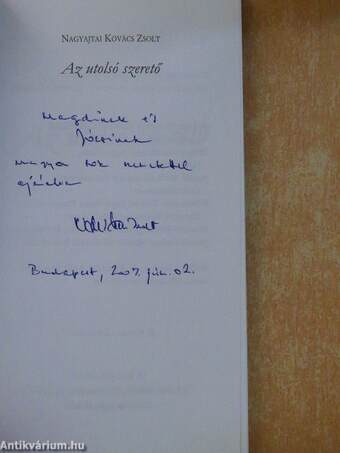 NAGYAJTAI KOVÁCS ZSOLT
Az utolsó szerető
Magdinak és
Józsinak
nagyon sok szeretettel
Zsolt
Budapest, 2007. jún. 02.
Antikvárium.hu